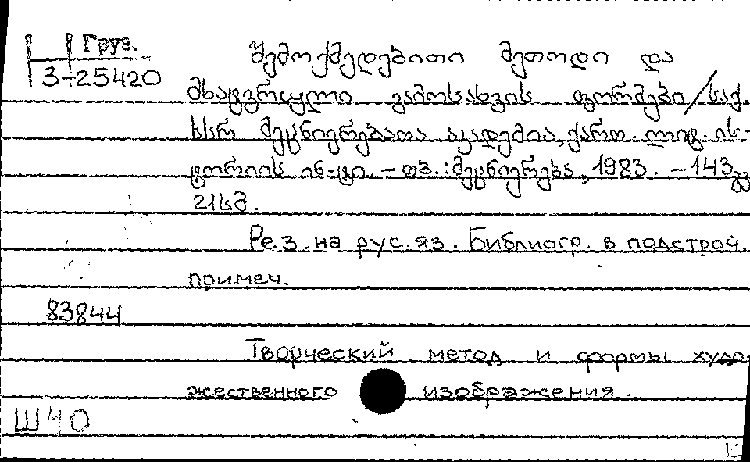 Груз.
შემოქმედებითი მეთოდი და
3-25420
მხატვრული გამოსახვის ფორმები/საქ.
სსრ მეცნიერებათა აკადემია, ქართ. ლიტ. ის-
ტორიის ინ-ტი. - თბ.: მეცნიერება, 1983. - 143გვ
21სმ.
Рез. на рус. яз. Библиогр. в подстроч.
примеч.
83844
Творческий метод и формы худо-
жественного изображения.
Ш40